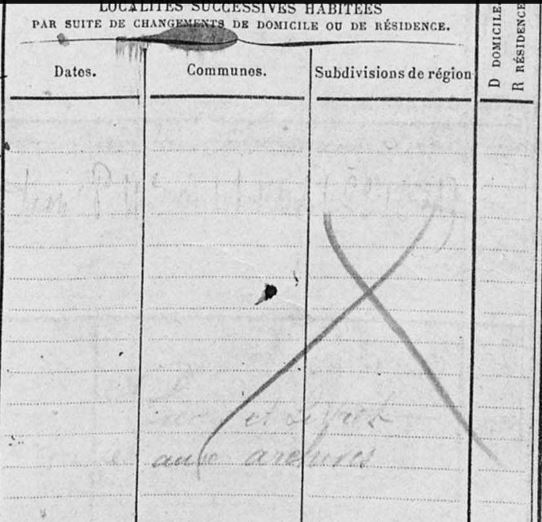 LOCALITÉS SUCCESSIVES HABITÉES
PAR SUITE DE CHANGEMENTS DE DOMICILE OU DE RÉSIDENCE.
Dates.
Communes.
Subdivisions de région
D DOMICILE
R RÉSIDENCE
et
aux archives